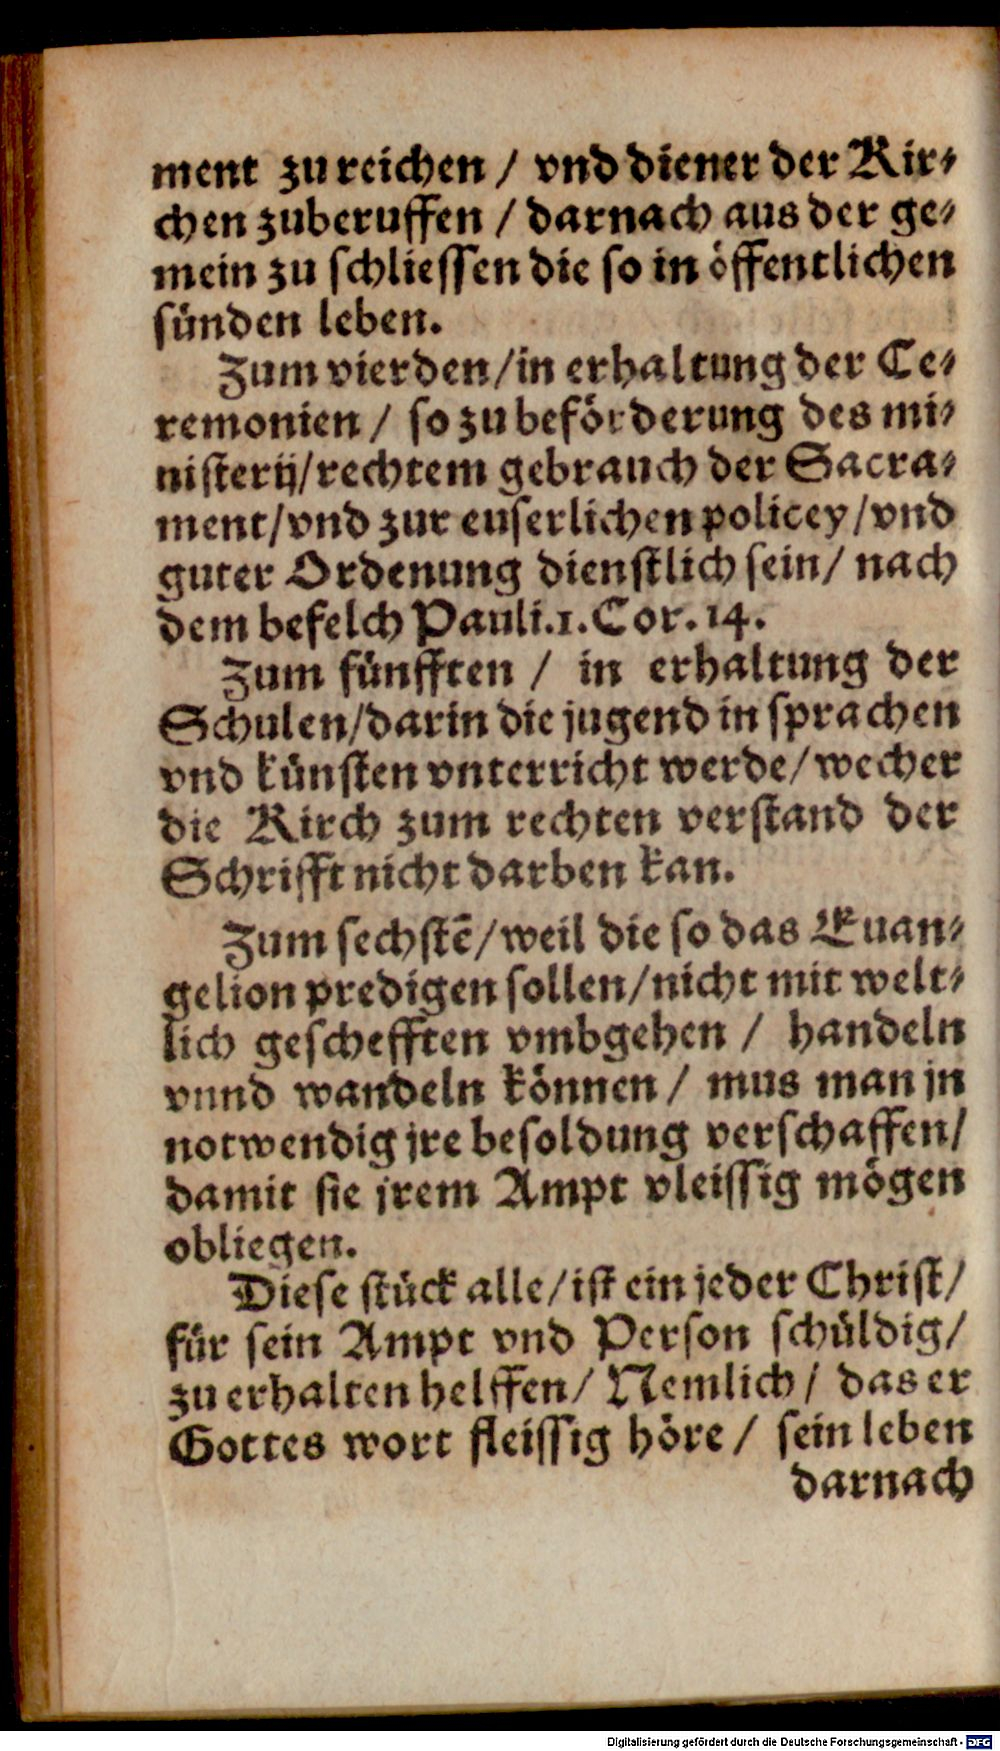 ment zu reichen / vnd diener der Kir⸗
chen zuberuffen / darnach aus der ge⸗
mein zu schliessen die so in öffentlichen
sünden leben.
Zum vierden/in erhaltung der Ce⸗
remonien / so zu beförderung des mi⸗
nisterij/rechtem gebrauch der Sacra⸗
ment/vnd zur euserlichen policey/vnd
guter Ordenung dienstlich sein/ nach
dem befelch Pauli.1.Cor.14.
Zum fünfften / in erhaltung der
Schulen/darin die jugend in sprachen
vnd künsten vnterricht werde/wecher
die Kirch zum rechten verstand der
Schrifft nicht darben kan.
Zum sechstē/weil die so das Euan⸗
gelion predigen sollen/nicht mit welt⸗
lich geschefften vmbgehen / handeln
vnnd wandeln können/ mus man jn
notwendig jre besoldung verschaffen/
damit sie jrem Ampt vleissig mögen
obliegen.
Diese stück alle/ist ein jeder Christ/
für sein Ampt vnd Person schüldig/
zu erhalten helffen/ Nemlich/ das er
Gottes wort fleissig höre/ sein leben
darnach
Digitalisierung gefördert durch die Deutsche Forschungsgemeinschaft - DFG